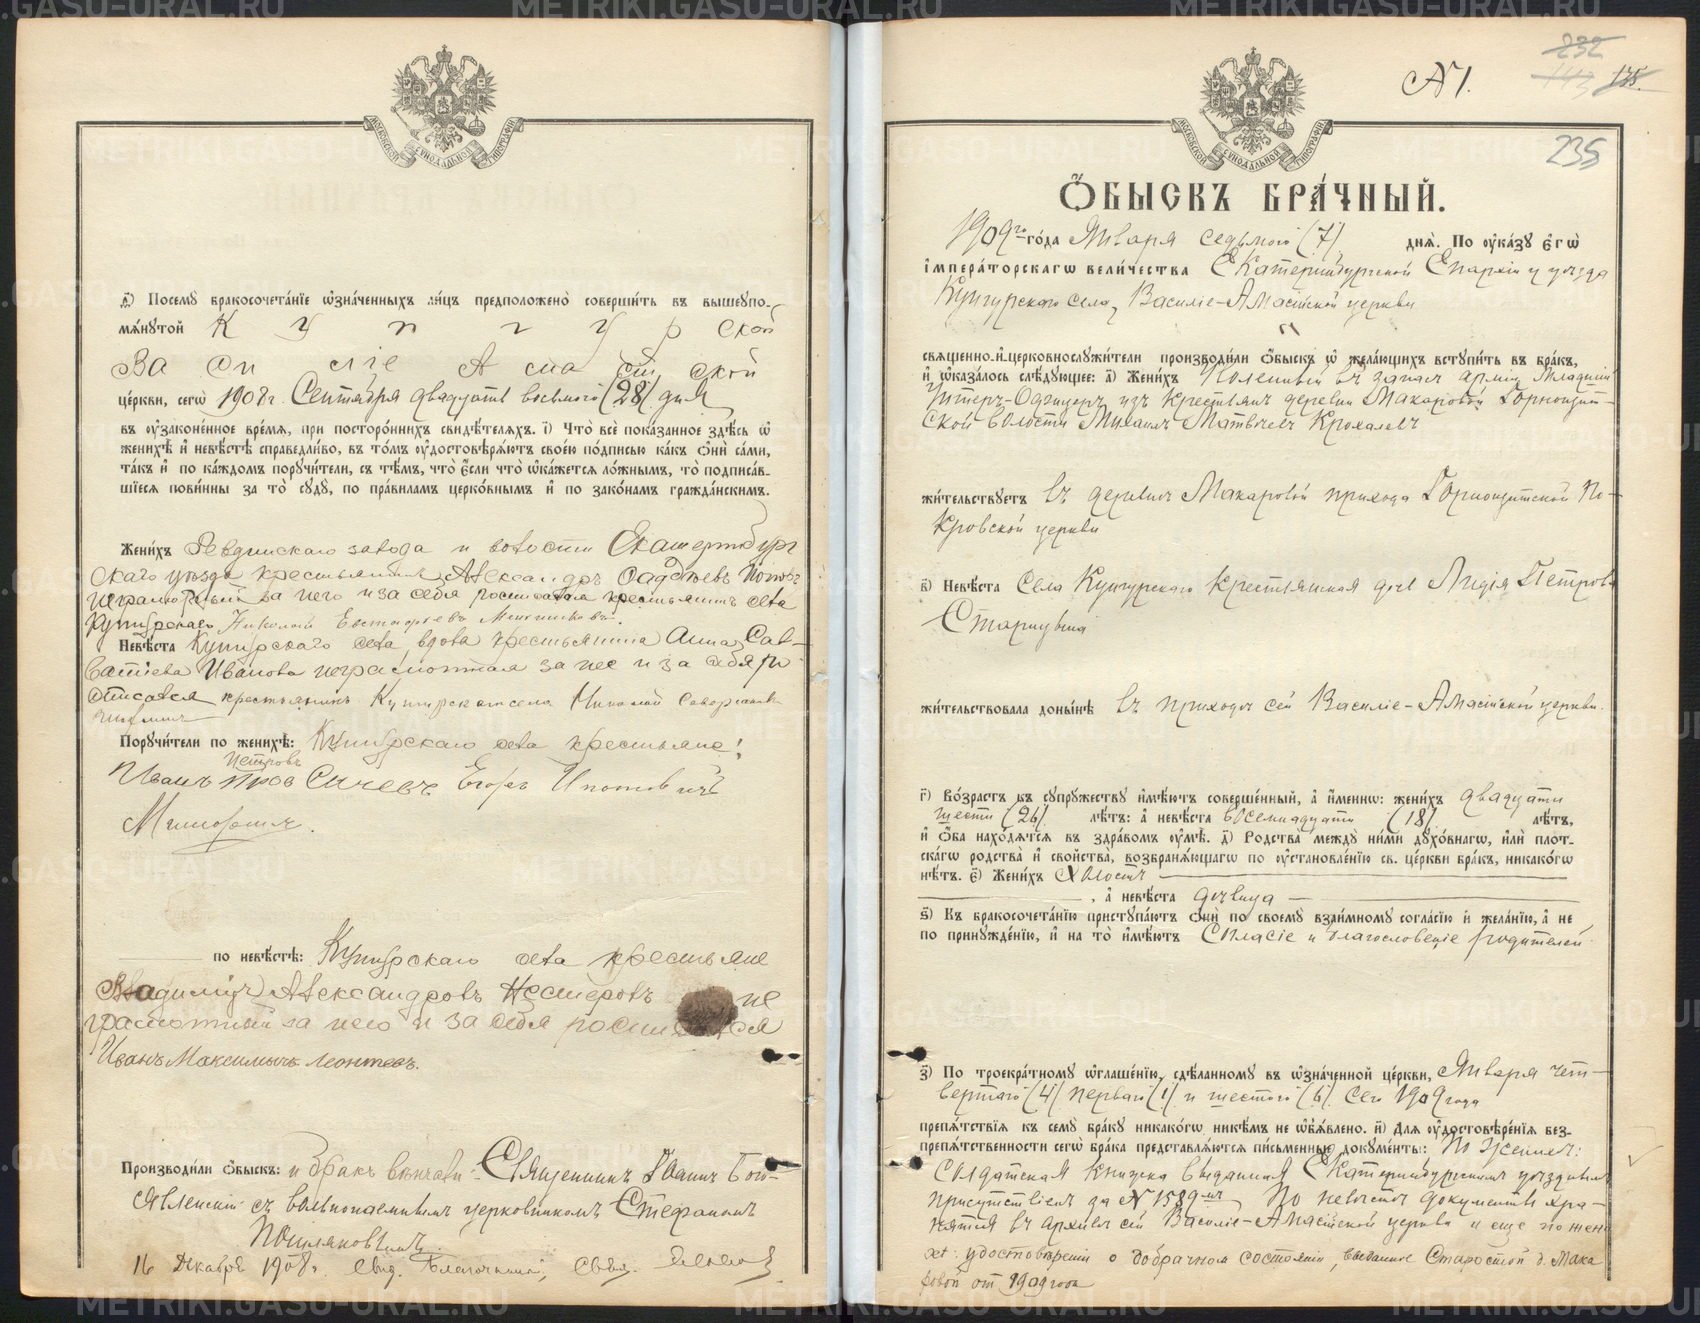 ѳ) Посемꙋ бракосочета́нїе ѡ҆зна́ченныхъ ли́цъ предположено̀ соверши́ть въ вышеꙋпо-
мѧ́нꙋтой Кунгурской
Василіе Амасійской
це́ркви, сегѡ̀ 1908 г. Сентября двадцать восьмого (28) дня
въ ᲂу҆зако́ненное вре́мѧ, при посторо́ннихъ свидѣ́телѧхъ. і) Что̀ всѐ пока́занное здѣ́сь ѡ҆
женихѣ̀ и҆ невѣ́стѣ справедли́во, въ то́мъ ᲂу҆достовѣрѧ́ютъ свое́ю по́дписью ка́къ ѻ҆нѝ са́ми,
та́къ и҆ по ка́ждомъ порꙋчи́тели, съ тѣ́мъ, что̀ є҆́сли что̀ ѡ҆ка́жетсѧ ло́жнымъ, то̀ подписа́в-
шїесѧ пови́нны за то̀ сꙋдꙋ̀, по пра́виламъ церко́внымъ и҆ по зако́намъ гражда́нскимъ.
Жени́хъ Ревдинскаго завода и волости Екатеринбург
скаго уѣзда крестьянинъ Александръ
неграмотный за него и за себя росписался крестьянинъ села
Кунгурскаго Николай
Невѣ́ста Кунгурскаго села вдова крестьянина Анна Сав-
ватіева Иванова неграмотная за нее и за себя ро
списался крестьянинъ Кунгурскаго села Николай
Порꙋчи́тели по женихѣ̀: Кунгурскаго села крестьяне:
Петровъ
Иванъ Сычевъ Егоръ
по невѣ́стѣ: Кунгурскаго села крестьяне
Владимиръ Александровъ Нестеровъ не
грамотный за него и за себя росписался
Иванъ Максимычъ Леонтевъ.
Производи́ли ѻ҆́быскъ: и бракъ вѣнчали: Священникъ Іоаннъ Бого-
явленскій съ вольнонаемнымъ церковникомъ Стефаномъ
16 Декабря 1908 г. Свид. Благочинный, Свящ.
№ 1.
232
135.
235
Ѻ҆́БЫСКЪ БРА́ЧНЫЙ.
1909го го́да Января седьмого (7) днѧ̀. По ᲂу҆ка́зꙋ є҆гѡ̀
і҆мпера́торскагѡ вели́чества Екатеринбургской Епархіи и уѣзда
Кунгурскаго села, Василіе-Амасійской церкви
свѧще́нно-и҆-церковнослꙋжи́тели производи́ли ѻ҆́быскъ ѡ҆ жела́ющихъ встꙋпи́ть въ бра́къ,
и҆ ѡ҆каза́лось слѣ́дꙋющее: а҃) Жени́хъ въ запасъ арміи Младшій
Унтеръ-Офицеръ изъ крестьянъ деревни Макаровой Горнощит-
ской волости Михаилъ Матвѣевъ Крохалевъ
жи́тельствꙋетъ въ деревнѣ Макаровой прихода Горнощитской По-
кровской церкви
в҃) Невѣ́ста Села Кунгурскаго крестьянская дочь Лидія Петрова
Старцева
жи́тельствовала доны́нѣ въ приходѣ сей Василіе-Амасійской церкви.
г҃) Во́зрастъ къ сꙋпрꙋ́жествꙋ и҆мѣ́ютъ соверше́нный, а҆ и҆́менно: жени́хъ двадцати
шести (26) лѣ́тъ: а҆ невѣ́ста восемнадцати (18) лѣ́тъ,
и҆ ѻ҆́ба нахо́дѧтсѧ въ здра́вомъ ᲂу҆мѣ̀. д҃) Родства̀ междꙋ̀ ни́ми дꙋхо́внагѡ, и҆лѝ пло́т-
скагѡ родства̀ и҆ сво́йства, возбранѧ́ющагѡ по ᲂу҆становле́нїю св. це́ркви бра́къ, никако́гѡ
нѣ́тъ. є҃) Жени́хъ холостъ
, а҆ невѣ́ста дѣвица
ѕ҃) Къ бракосочета́нїю пристꙋпа́ютъ ѻ҆нѝ по своемꙋ̀ взаи́мномꙋ согла́сїю и҆ жела́нїю, а҆ не
по принꙋжде́нїю, и҆ на то̀ и҆мѣ́ютъ согласіе и благословеніе родителей
з҃) По троекра́тномꙋ ѡ҆глаше́нїю, сдѣ́ланномꙋ въ ѡ҆зна́ченной це́ркви, Января чет-
вертаго (4) перваго (1) и шестого (6) сего 1909 года
препѧ́тствїѧ къ семꙋ̀ бра́кꙋ никако́гѡ никѣ́мъ не ѡ҆б̾ѧ́влено. и҃) Для ᲂу҆достовѣре́нїѧ без-
препѧ́тственности сегѡ̀ бра́ка представлѧ́ютсѧ пи́сьменные докꙋме́нты: По женихѣ:
Солдатская книжка выданная Екатеринбургскимъ уѣзднымъ
присутствіемъ за № 1589мъ По невѣстѣ документы хра-
нятся въ архивѣ сей Василіе-Амасійской церкви и еще по жени
хѣ: удостовѣреніе о добрачномъ состояніи, выданное Старостой д. Мака
ровой отъ 1909 года
METRIKI.GASU-URAL.RU